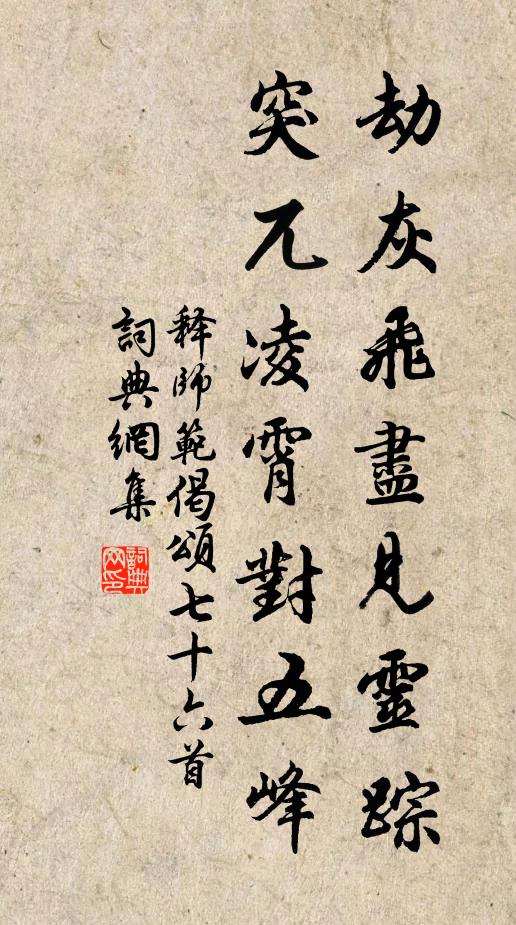 劫灰飛盡見靈踪
突兀凌霄對五峰
释師範偈頌七十六首
詞典網集
詞典网印